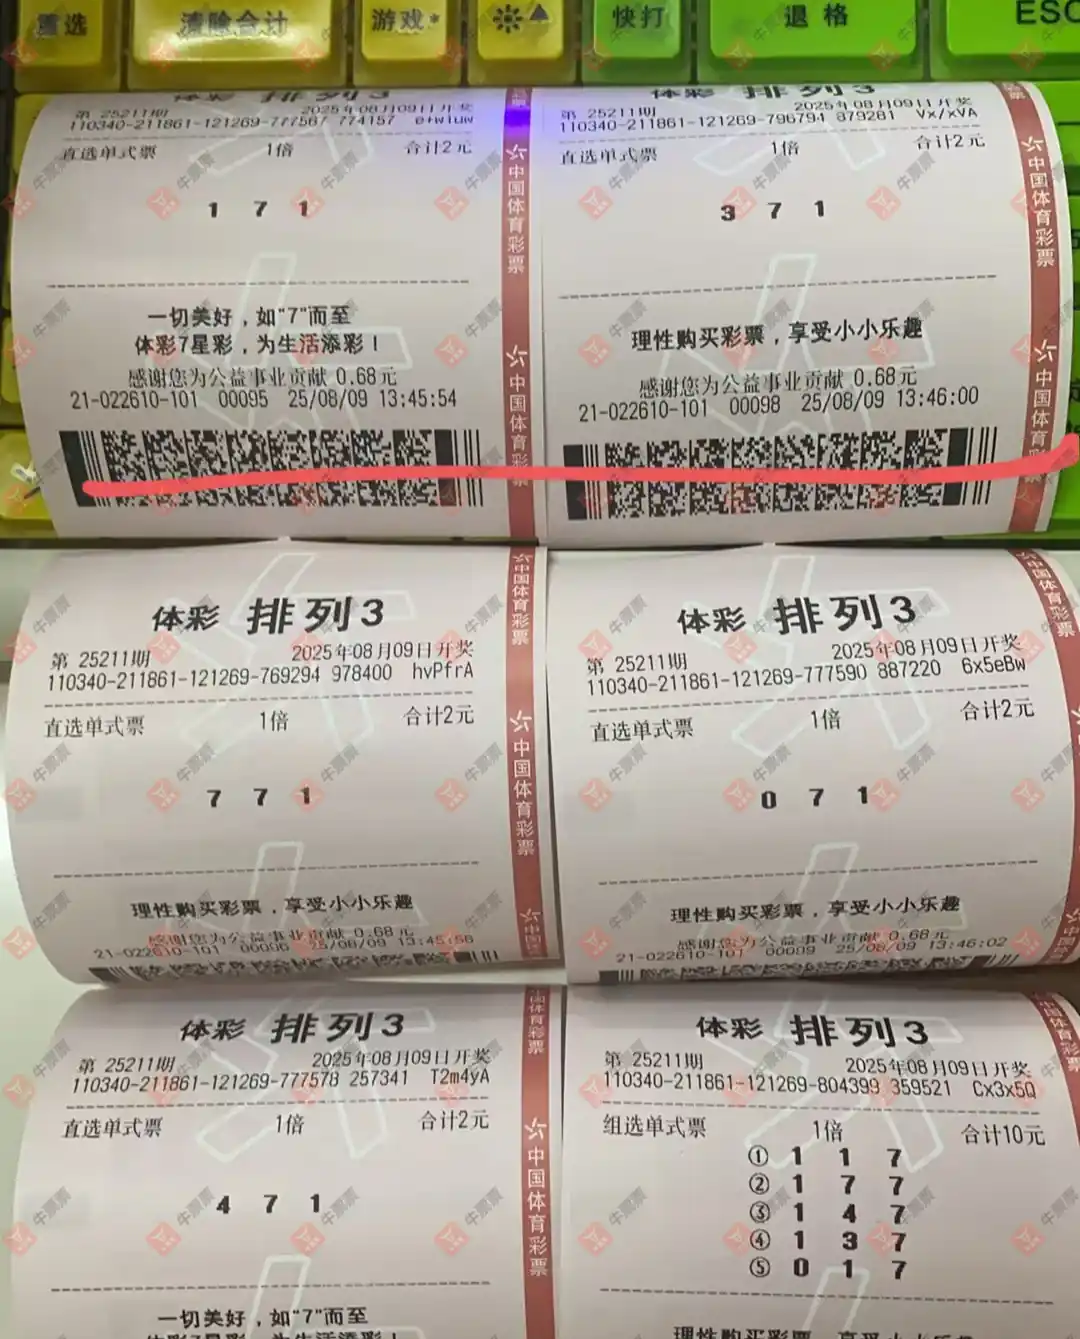 重选
清除合计
游戏*
快打
退格
ESC
体彩 排列3
第 25211期 2025年08月09日开奖
110340-211861-121269-777567 774157 e+wiuw
直选单式票 1倍 合计2元
1 7 1
一切美好，如“7”而至
体彩7星彩，为生活添彩！
感谢您为公益事业贡献 0.68元
21-022610-101 00095 25/08/09 13:45:54
中国体育彩票
体彩 排列3
第 25211期 2025年08月09日开奖
110340-211861-121269-796794 879281 Vx/xVA
直选单式票 1倍 合计2元
3 7 1
理性购买彩票，享受小小乐趣
感谢您为公益事业贡献 0.68元
21-022610-101 00098 25/08/09 13:46:00
中国体育彩票
中国体育
体彩 排列3
第 25211期 2025年08月09日开奖
110340-211861-121269-769294 978400 hvPfrA
直选单式票 1倍 合计2元
7 7 1
理性购买彩票，享受小小乐趣
感谢您为公益事业贡献 0.68元
21-022610-101 25/08/09 13:45:56
中国体育彩票
中国体育彩票
体彩 排列3
第 25211期 2025年08月09日开奖
110340-211861-121269-777590 887220 6x5eBw
直选单式票 1倍 合计2元
0 7 1
理性购买彩票，享受小小乐趣
感谢您为公益事业贡献 0.68元
21-022610-101 25/08/09 13:46:02
中国体育彩票
体彩 排列3
第 25211期 2025年08月09日开奖
110340-211861-121269-777578 257341 T2m4yA
直选单式票 1倍 合计2元
4 7 1
一切美好，如“7”而至
体彩7星彩，为生活添彩！
中国体育彩票
体彩 排列3
第 25211期 2025年08月09日开奖
110340-211861-121269-804399 359521 Cx3x5Q
组选单式票 1倍 合计10元
① 1 1 7
② 1 7 7
③ 1 4 7
④ 1 3 7
⑤ 0 1 7
理性购买彩票，享受小小乐趣
牛票票